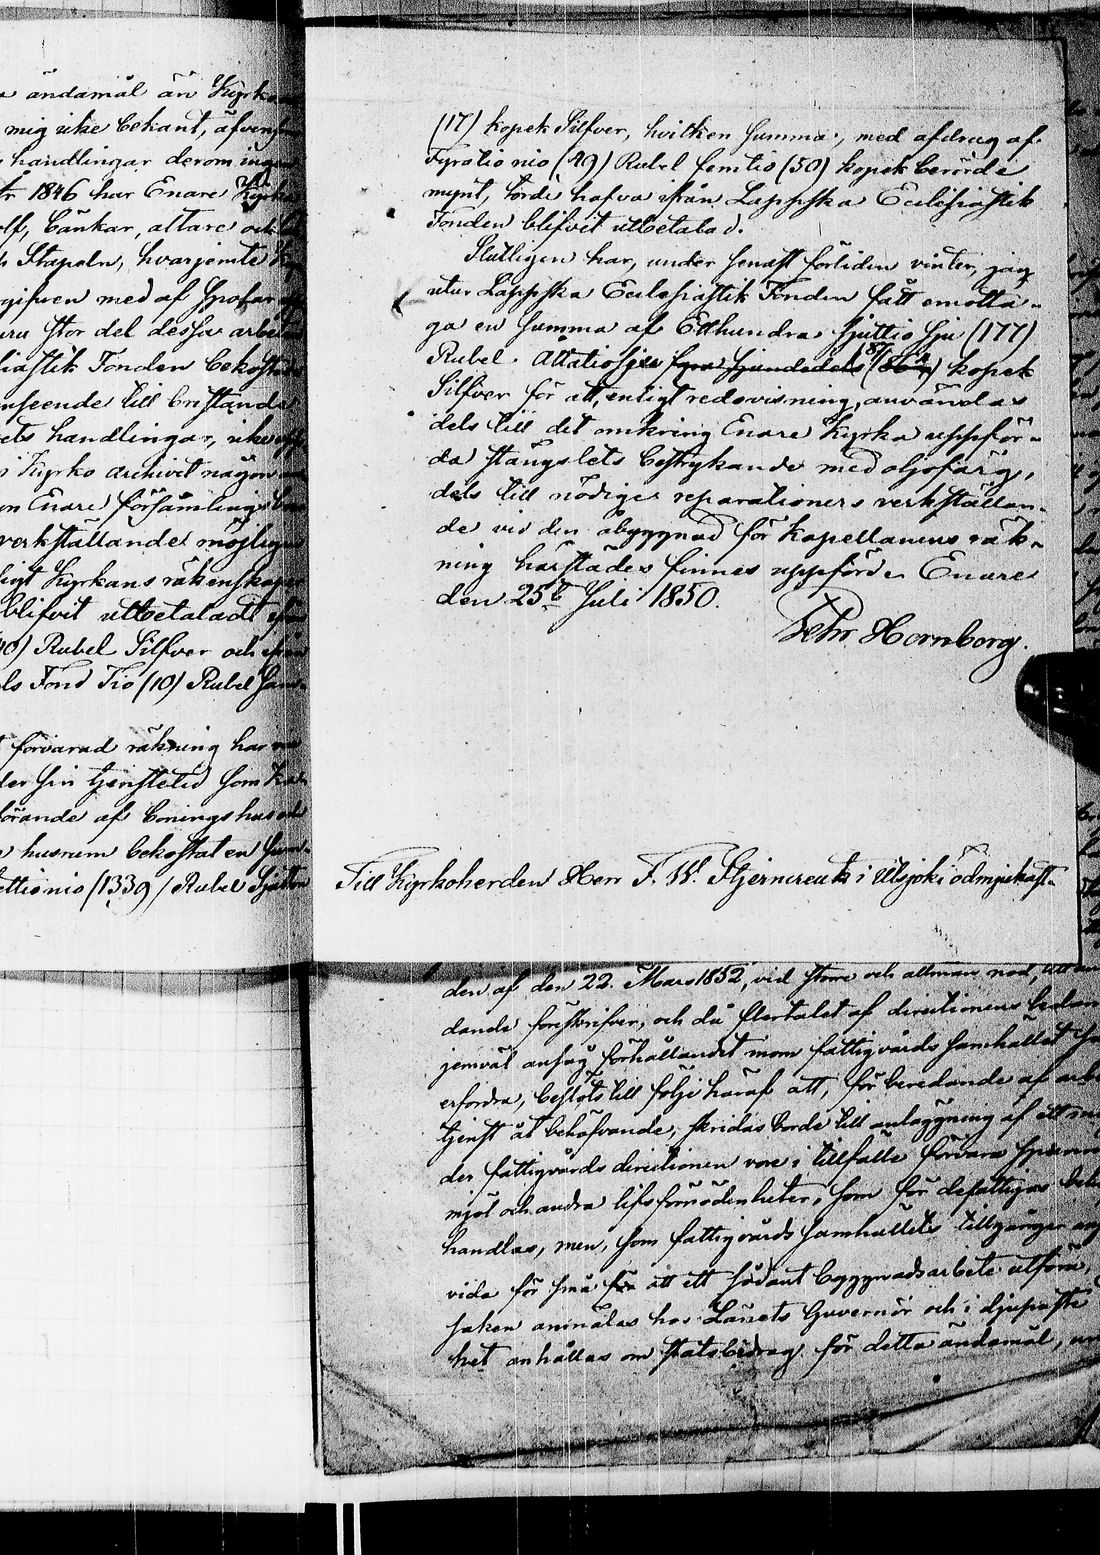 a ändamål än Kyrko
mig icke bekant, äfven
handlingar derom ingen
1846 har Enare Kyrka
bänkar, altare och
Stapeln, hvarjemte
med af
stor del dessa
siastik Fonden bekosta
anseende till bristande
handlingar, icke
i Kyrko archivet någon
Enare församlings
verkställande möjligen
ligt Kyrkans räkenskaper
blifvit utbetaladt
Rubel Silfver och
Fond Tio (10) Rubel
förvarad räkning har
der sin tjenstetid som
förande af boningshus
husrum bekostat en
(1339) Rubel
(17) kopek Silfver, hvilken Summa, med afdrag af
Fyratio nio (49) Rubel femtio (50) kopek berörde
mynt, torde hafva från Lappska Ecclesiastik
Fonden blifvit utbetalad.
Slutligen har, under senast förliden vinter, jag
utur Lappska Ecclesiastik Fonden fått emotta-
ga en summa af Etthundra sjuttio sju (177)
Rubel Åttatiosju fyra sjundedels 87 kopek
Silfver för att, enligt redovisning, användas
dels till det omkring Enare Kyrka uppför-
da stängslets bestrykande med oljefärg,
dels till nödiga reparationers verkställan-
de vid den åbyggnad för Kapellanens räk-
ning härstädes finnes uppförd. Enare
den 25te Juli 1850.
Petr. Hornborg.
Till Kyrkoherden Herr F. W. Stjerncreutz i Utsjoki ödmjukast.
den af den 22. Mars 1852, vid större och allmän nöd,
dande föreskrifver, och då flertalet af directionens
jemväl ansåg förhållandet inom fattigvårds samhället
erfordra, beslöts till följe häraf att, för beredande af
tjenst åt behöfvande, skridas borde till anläggning af ett
der fattigvårds directionen vore i tillfälle förvara
mjöl och andra lifsförnödenheter, som för defattigas
handlas, men, som fattigvårds samhällets tillgångar
vida för små för att ett sådant byggnadsarbete utföra,
saken anmälas hos Länets Guvernör och i djupaste
het anhållas om statsbidrag för detta ändamål,